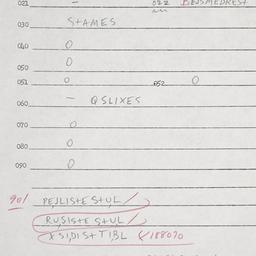 021 – 022 BEJSMEDREST
030 STAMES
040 O
050 O
051 O 052 O
060 – QSLIXES
070 O
080 O
090 O
901 PEJLISTE STUL /
RUSISTE STUL /
XSIDIST TIBL &188070